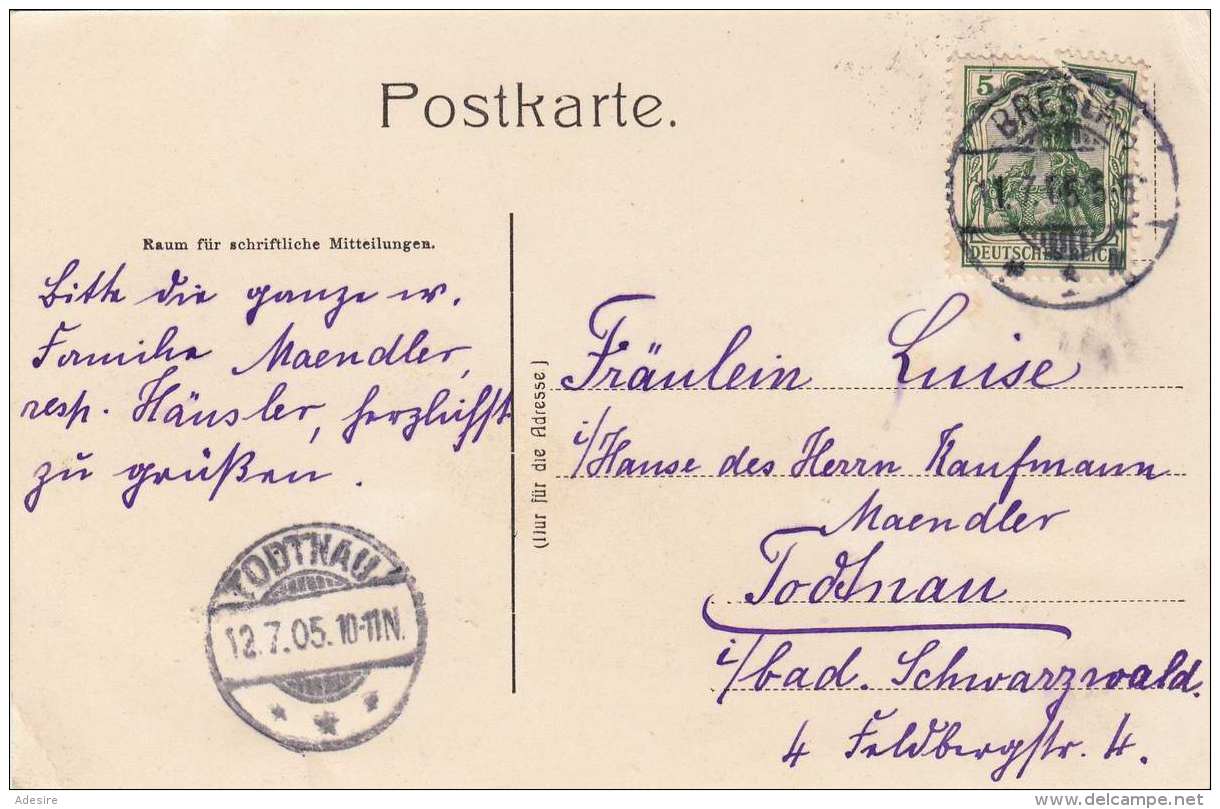 Postkarte.
5 5
BRESLAU
11.7.05.5-6
DEUTSCHES REICH
1
Raum für schriftliche Mitteilungen.
Bitte die ganze w.
Familie Maendler,
resp. Häusler, herzlichst
zu grüßen.
(Nur für die Adresse)
Fräulein Luise
i/Hause des Herrn Kaufmann
Maendler
Todtnau
i/bad. Schwarzwald.
4 Feldbergstr. 4.
TODTNAU
12.7.05.10-11N.
Adesire
delcampe.net